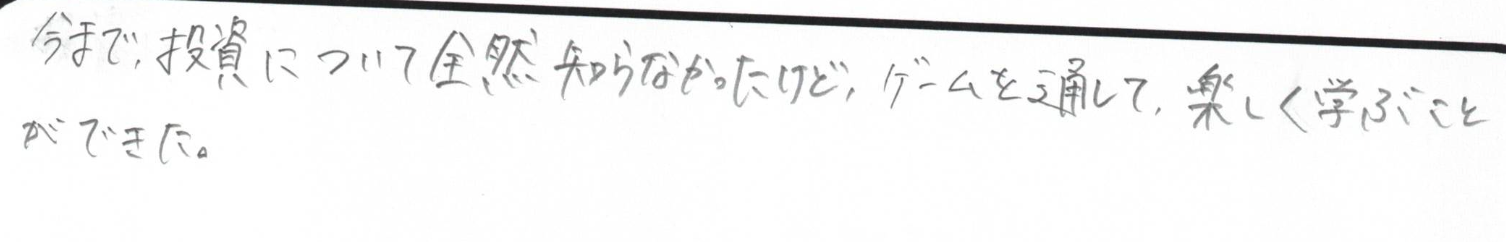 今まで、投資について全然知らなかったけど、ゲームを通して、楽しく学ぶこと
ができた。